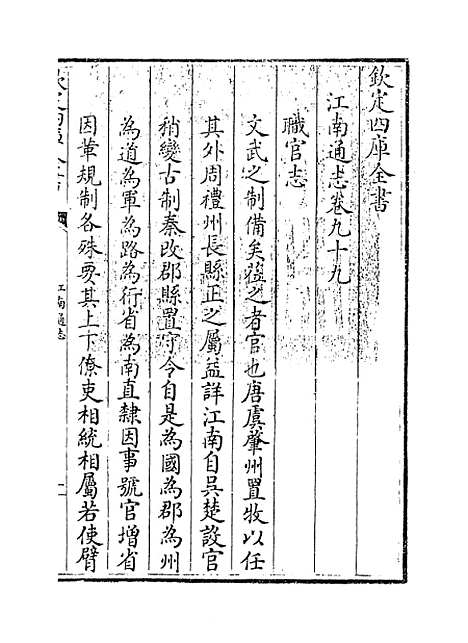 欽定四庫全書
江南通志卷九十九
職官志
文武之制備矣蒞之者官也唐虞肇州置牧以任
其外周禮州長縣正之屬益詳江南自吳楚設官
稍變古制秦改郡縣置守令自是為國為郡為州
為道為軍為路為行省為南直隸因事號官增省
因革規制各殊要其上下僚吏相統相屬若使臂
江南通志